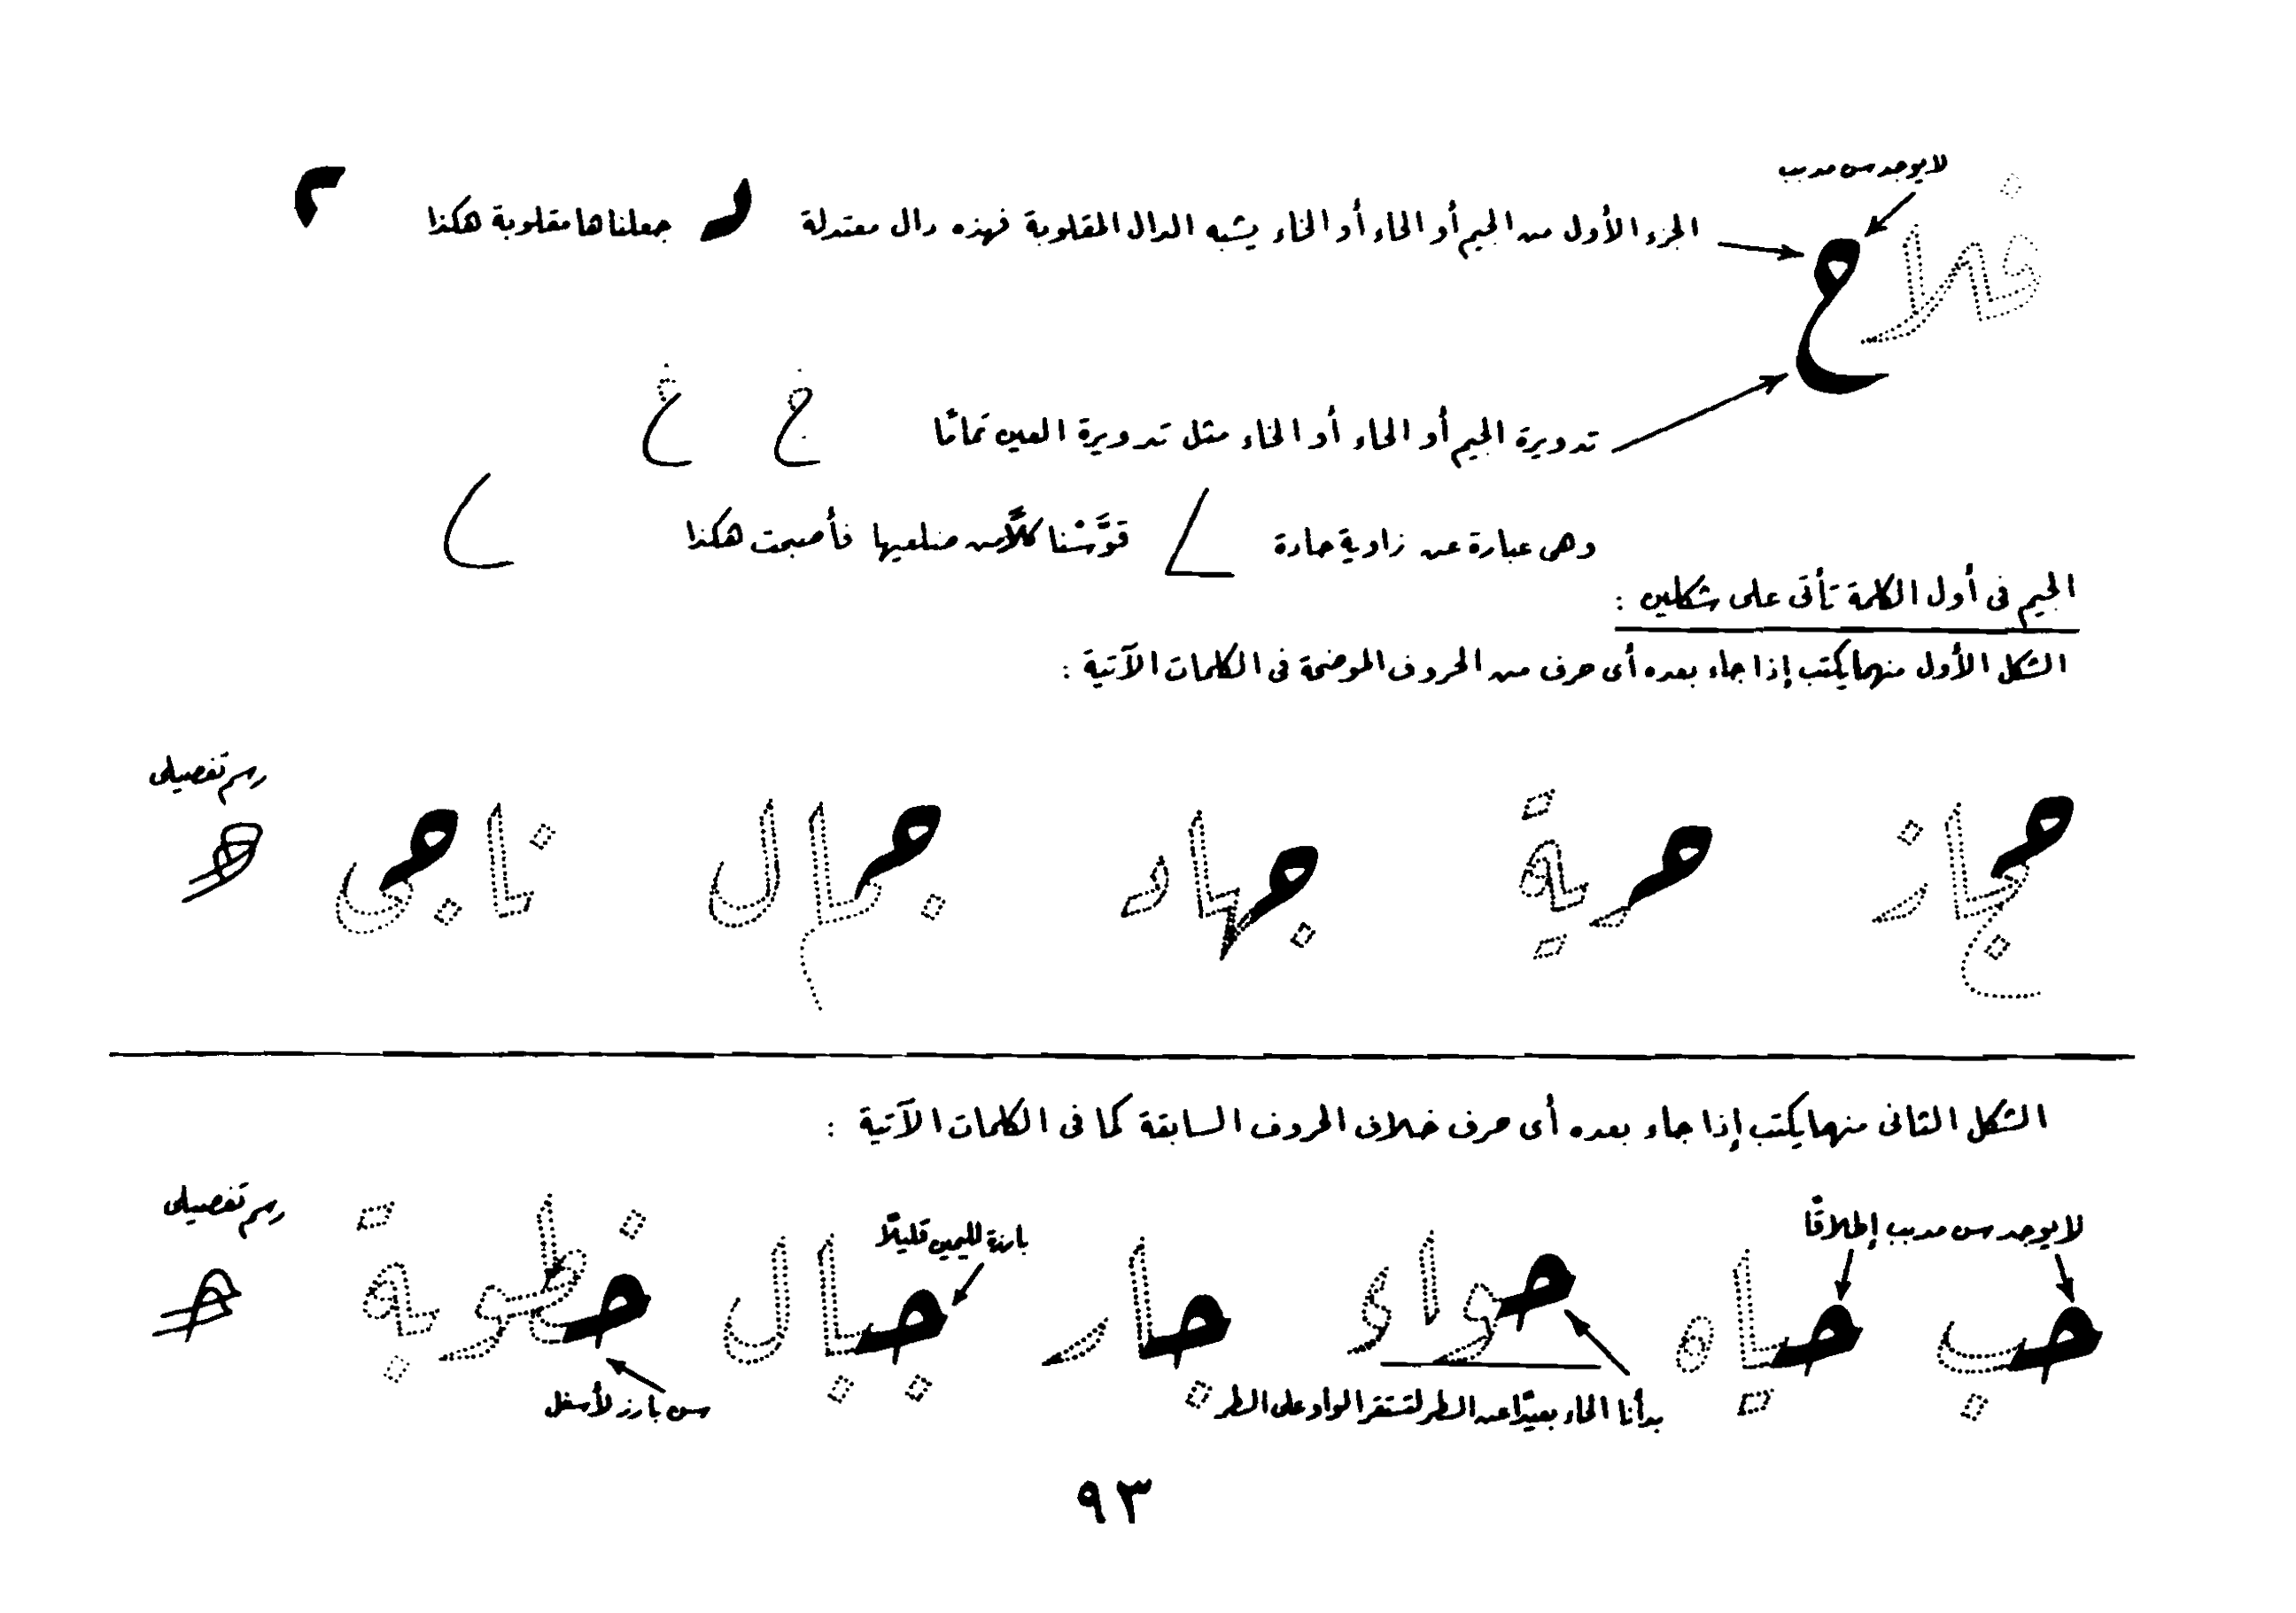 لا يوجد سن مدبب
فلاح
الجزء الأول من الجيم أو الحاء أو الخاء يشبه الدال المقلوبة فهذه دال معتدلة د جعلناها مقلوبة هكذا
تدويرة الجيم أو الحاء أو الخاء مثل تدويرة العين تمامًا
وهى عبارة عن زاوية حادة قوَّسْنا كلاًّ من ضلعيها فأصبحت هكذا
الجيم فى أول الكلمة تأتى على شكلين :
الشكل الأول منهما يكتب إذا جاء بعده أى حرف من الحروف الموضحة فى الكلمات الآتية :
رسم تفصيلى
حجاز حرية جهاد جمال ناجى
الشكل الثانى منهما يكتب إذا جاء بعده أى حرف خلاف الحروف السابقة كما فى الكلمات الآتية :
لا يوجد سن مدبب إطلاقًا
بارزة لليمين قليلاً
رسم تفصيلى
حب حياه حواء جار جبال خطوبة
بدأنا الحاء بعيدًا عن السطر لتستقر الواو على السطر
سن بارز لأسفل
٩٣